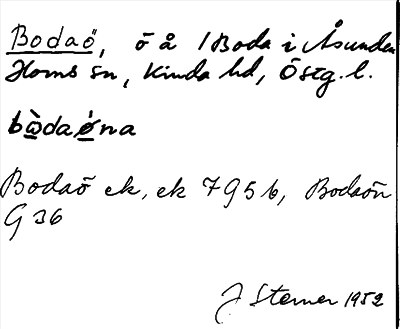 Bodaö, ö å / Boda i Åsunden
Horns sn, Kinda hd, Östg. l.
bòdaǿna
Bodaö ek, ek 7956, Bodaön
G 36
J Sterner 1952